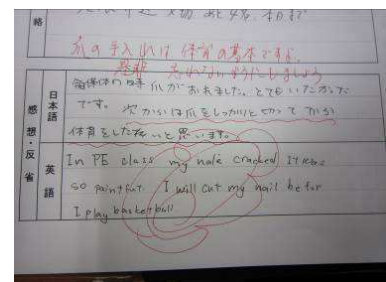 絡
爪の手入れは体育の基本ですよ。
忘れないようにしましょう
感想・反省
日本語
爪がおれました。とてもいたかった
です。次からは爪をしっかりと切ってから
体育をしたいと思います。
英語
In PE class my nale cracked It was
so paintful. I will cut my nail befor
I play basketball